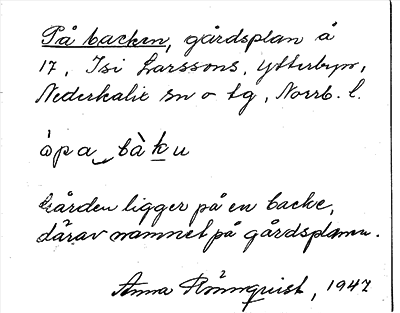 På backen, gårdsplan å
17, Isi Larssons, Ytterbyn,
Nederkalix sn o tg, Norrb. l.
òpa‿bàku
Gården ligger på en backe,
därav namnet på gårdsplanen.
Anna Rönnquist, 1947